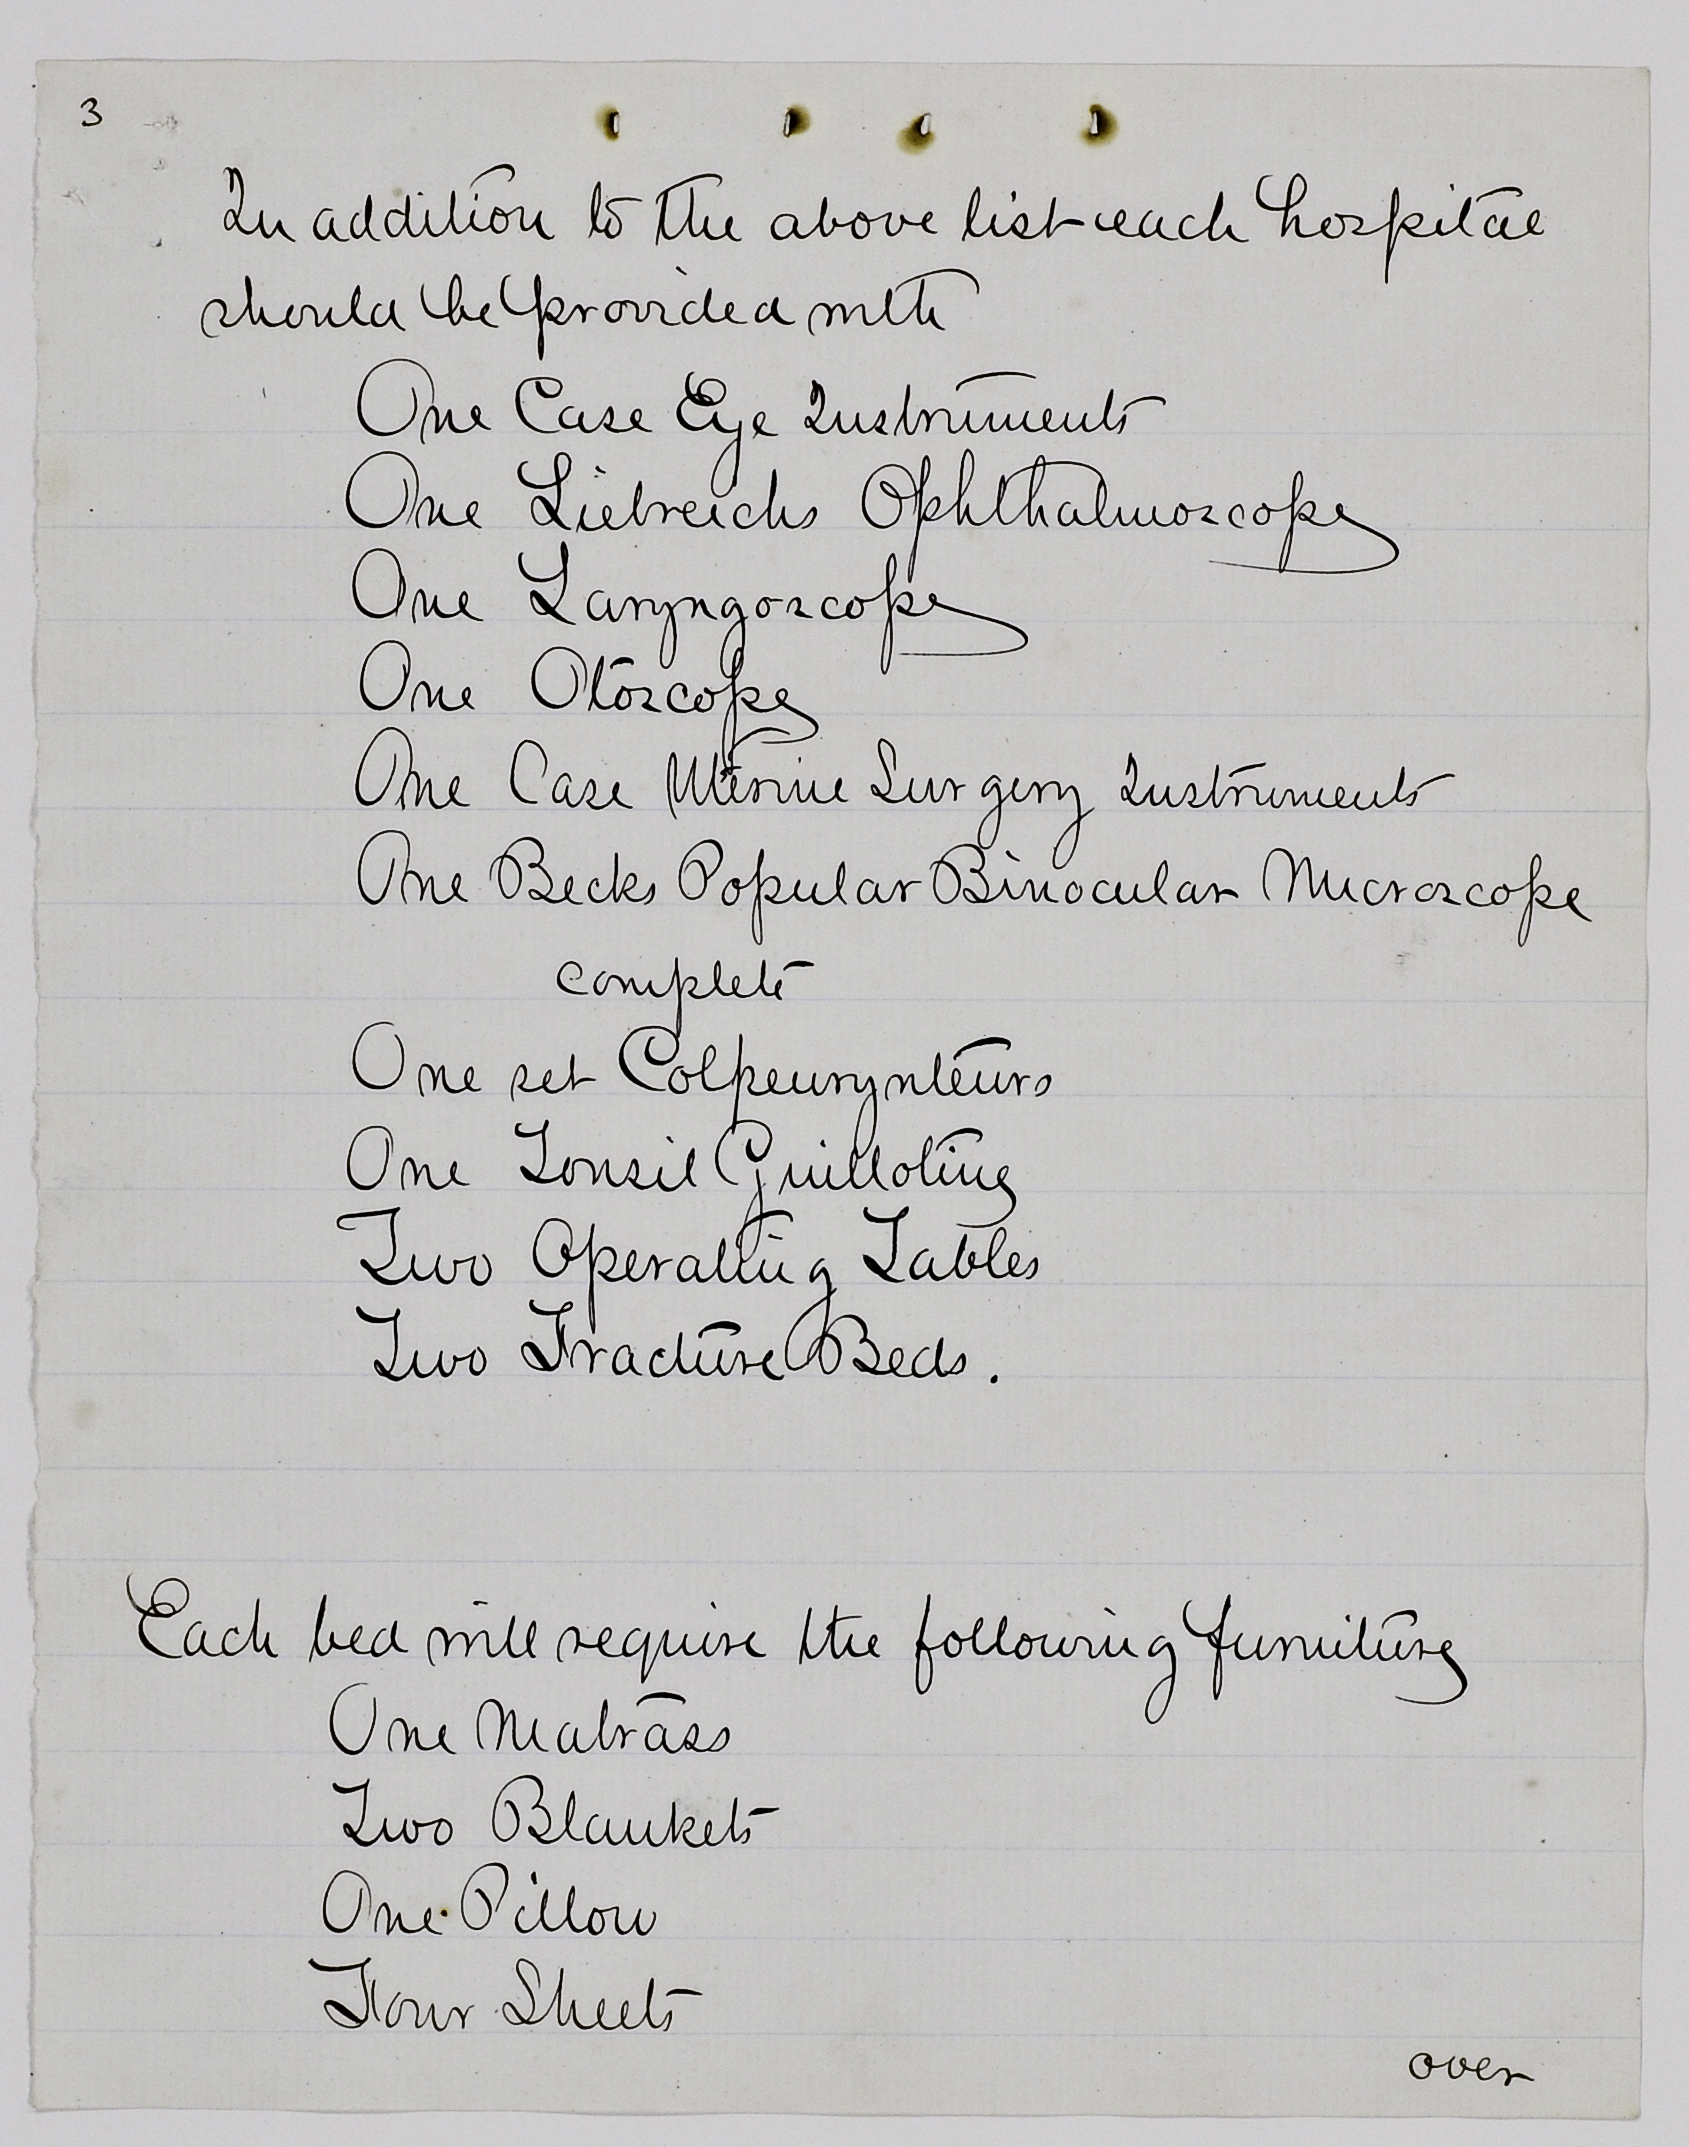 3
In addition to the above list each hospital
should be provided with
One Case Eye Instruments
One Liebreichs Ophthalmoscope
One Laryngoscope
One Otoscope
One Case Uterine Surgery Instruments
One Becks Popular Binocular Microscope
complete
One set Colpeurynteurs
One Tonsil Guillotine
Two Operating Tables
Two Fracture Beds.
Each bed will require the following furniture
One Matrass
Two Blankets
One Pillow
Four Sheets
over